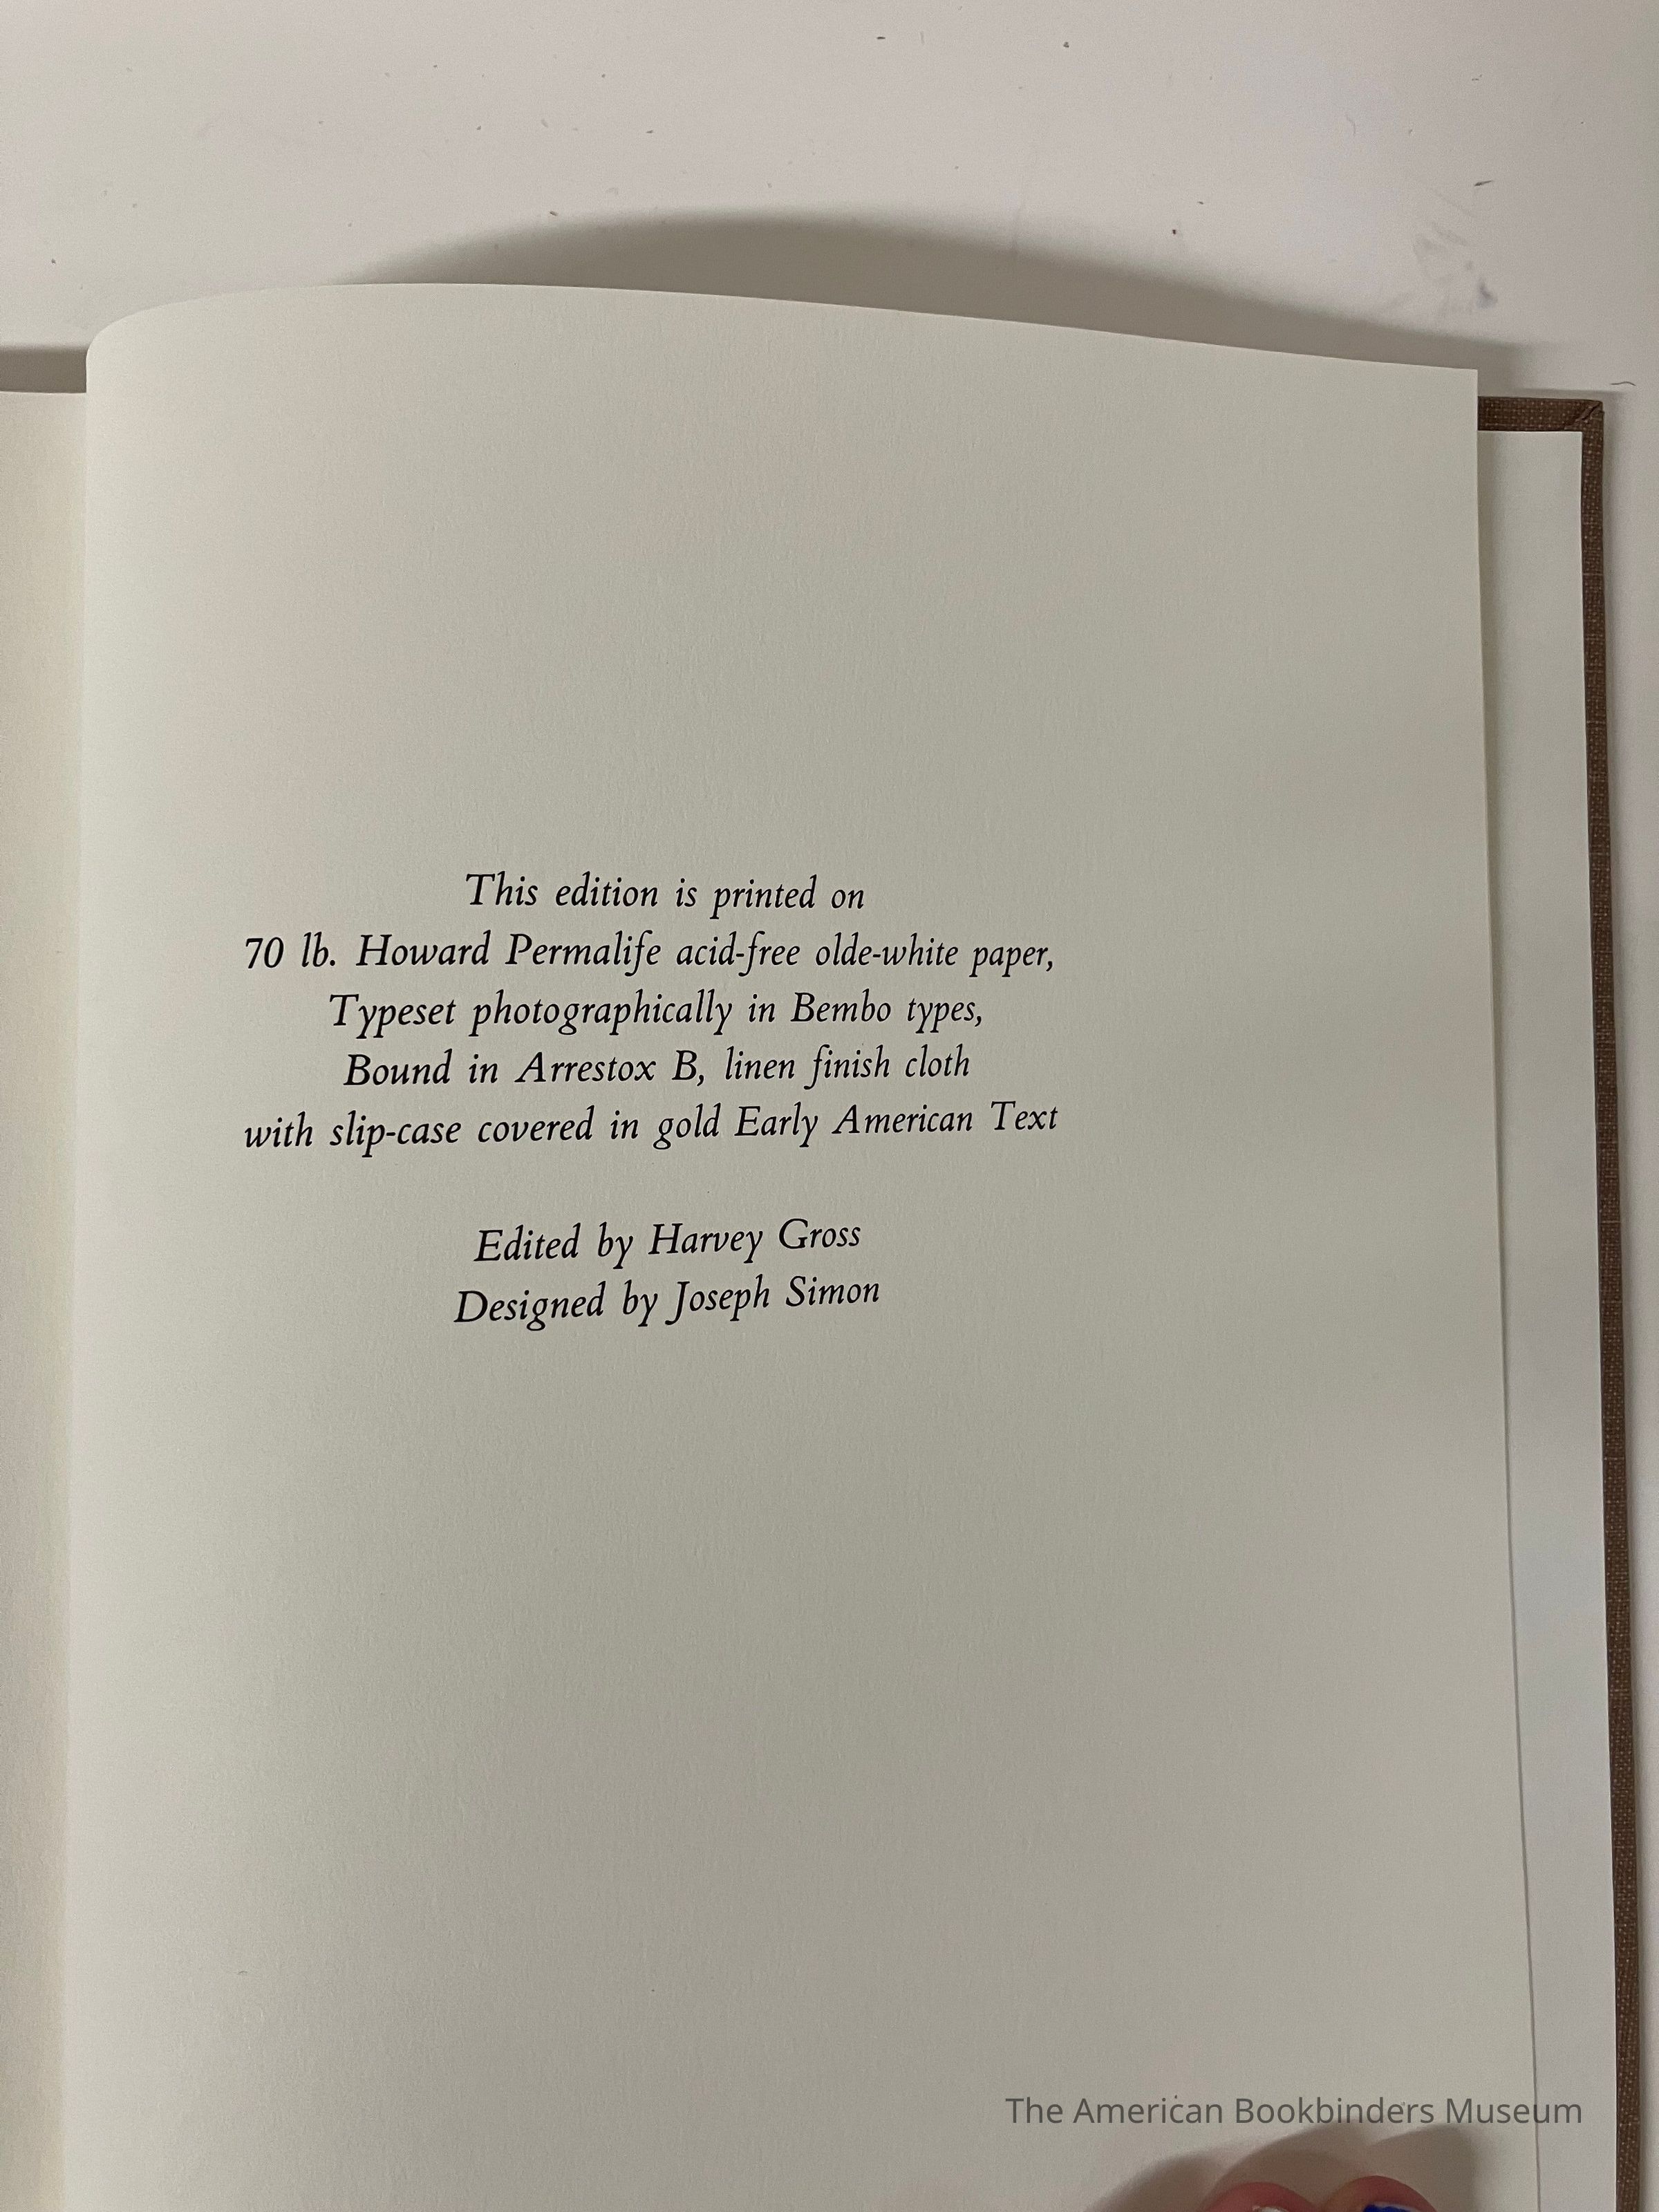 This edition is printed on
70 lb. Howard Permalife acid-free olde-white paper,
Typeset photographically in Bembo types,
Bound in Arrestox B, linen finish cloth
with slip-case covered in gold Early American Text
Edited by Harvey Gross
Designed by Joseph Simon
The American Bookbinders Museum